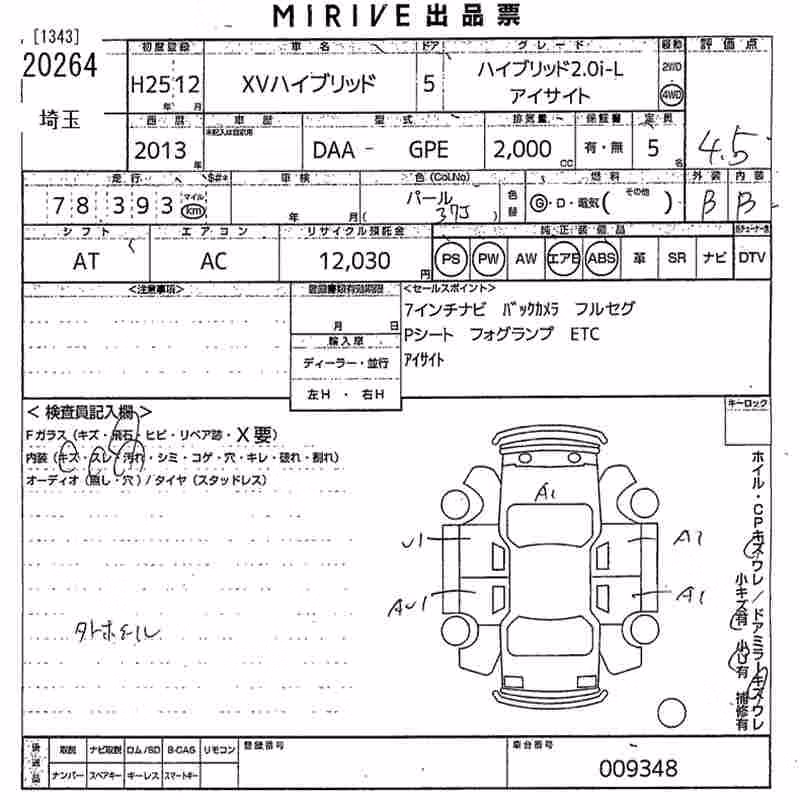 MIRIVE 出品票
[1343]
20264
埼玉
初度登録 車名 ドア グレード 駆動 評価点
H25 12 XVハイブリッド 5 ハイブリッド2.0i-L アイサイト 2WD 4WD
年 月
西暦 車歴 型式 排気量 保証書 定員
未記入は自家用
2013 年 DAA - GPE 2,000 CC 有・無 5 名 4.5
走行 $#* 車検 色 (Col.No) 色替 燃料 外装 内装
78393 マイル km 年 月 パール ( 37J ) G・D・電気 ( その他 ) B B
シフト エアコン リサイクル預託金 純正装備品
AT AC 12,030 円 PS PW AW エアB ABS 革 SR ナビ DTV
<注意事項> 登録書類有効期限 <セールスポイント>
月 日
7インチナビ バックカメラ フルセグ
Pシート フォグランプ ETC
アイサイト
輸入車
ディーラー・並行
左H ・ 右H
キーロック
< 検査員記入欄 >
Fガラス (キズ・飛石・ヒビ・リペア跡・X要)
内装 (キズ・スレ・汚れ・シミ・コゲ・穴・キレ・破れ・割れ)
オーディオ (無し・穴) / タイヤ (スタッドレス)
A1
U1 A1
AU1 A1
タトホイール
ホイル・CPキズワレ / ドアミラーキズワレ
小キズ有 小U有 補修有
後送品 取説 ナビ取説 ロム/SD B-CAS リモコン 登録番号 車台番号
ナンバー スペアキー キーレス スマートキー
009348